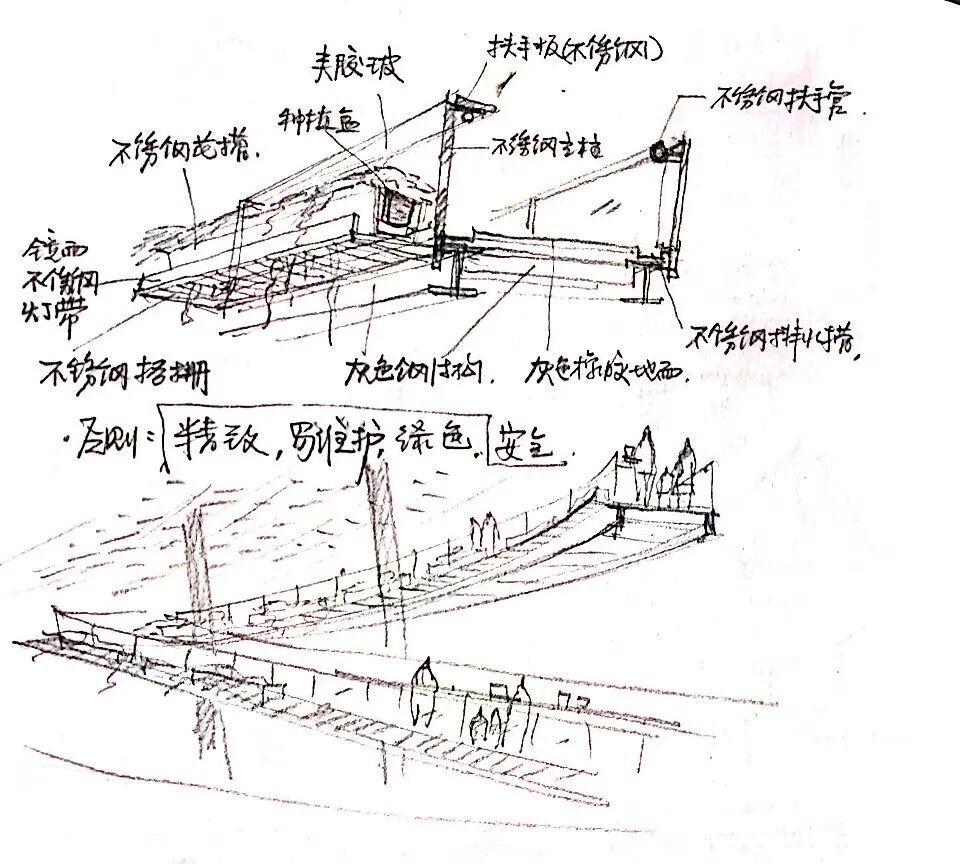 夹胶玻
扶手板(不锈钢)
不锈钢扶手管
种植盒
不锈钢花槽
不锈钢立柱
镜面
不锈钢
灯带
不锈钢排水槽
不锈钢格栅
灰色钢结构
灰色橡胶地面
·原则:精致,易维护,绿色,安全